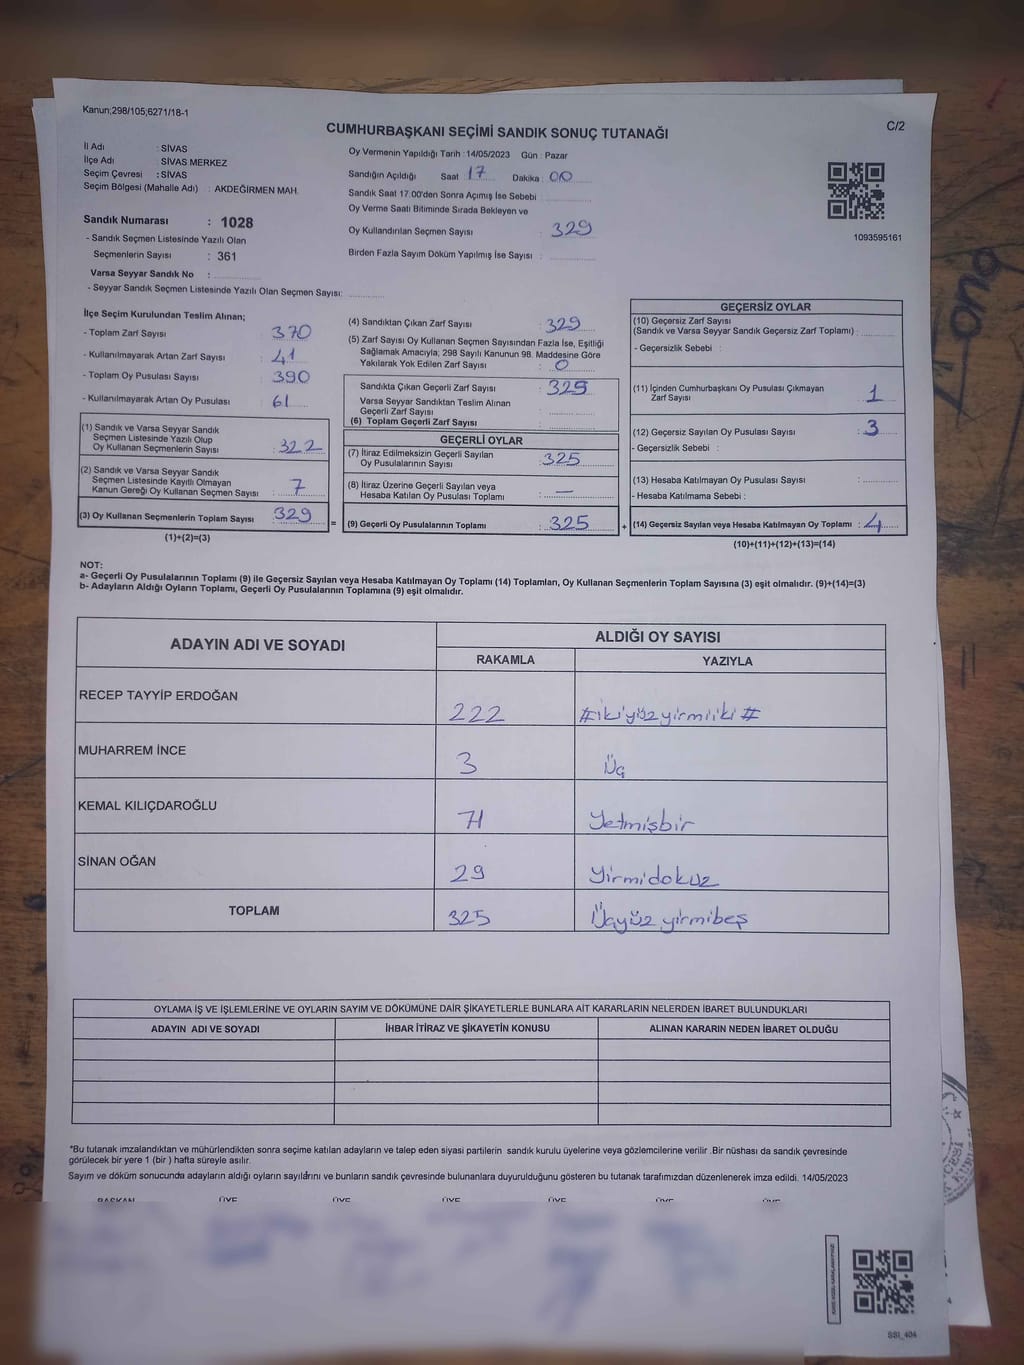 Kanun;298/105;6271/18-1
CUMHURBAŞKANI SEÇİMİ SANDIK SONUÇ TUTANAĞI
C/2
İl Adı : SİVAS
İlçe Adı : SİVAS MERKEZ
Seçim Çevresi : SİVAS
Seçim Bölgesi (Mahalle Adı) : AKDEĞİRMEN MAH.
Sandık Numarası : 1028
- Sandık Seçmen Listesinde Yazılı Olan
Seçmenlerin Sayısı : 361
Varsa Seyyar Sandık No :
- Seyyar Sandık Seçmen Listesinde Yazılı Olan Seçmen Sayısı:
Oy Vermenin Yapıldığı Tarih : 14/05/2023 Gün : Pazar
Sandığın Açıldığı Saat 17 Dakika : 00
Sandık Saat 17.00'den Sonra Açımış İse Sebebi :
Oy Verme Saati Bitiminde Sırada Bekleyen ve
Oy Kullandırılan Seçmen Sayısı : 329
Birden Fazla Sayım Döküm Yapılmış İse Sayısı :
1093595161
İlçe Seçim Kurulundan Teslim Alınan;
- Toplam Zarf Sayısı : 370
- Kullanılmayarak Artan Zarf Sayısı : 41
- Toplam Oy Pusulası Sayısı : 390
- Kullanılmayarak Artan Oy Pusulası : 61
(1) Sandık ve Varsa Seyyar Sandık
Seçmen Listesinde Yazılı Olup
Oy Kullanan Seçmenlerin Sayısı : 322
(2) Sandık ve Varsa Seyyar Sandık
Seçmen Listesinde Kayıtlı Olmayan
Kanun Gereği Oy Kullanan Seçmen Sayısı : 7
(3) Oy Kullanan Seçmenlerin Toplam Sayısı : 329
(1)+(2)=(3)
(4) Sandıktan Çıkan Zarf Sayısı : 329
(5) Zarf Sayısı Oy Kullanan Seçmen Sayısından Fazla İse, Eşitliği
Sağlamak Amacıyla; 298 Sayılı Kanunun 98. Maddesine Göre
Yakılarak Yok Edilen Zarf Sayısı : 0
Sandıkta Çıkan Geçerli Zarf Sayısı : 329
Varsa Seyyar Sandıktan Teslim Alınan
Geçerli Zarf Sayısı :
(6) Toplam Geçerli Zarf Sayısı :
GEÇERLİ OYLAR
(7) İtiraz Edilmeksizin Geçerli Sayılan
Oy Pusulalarının Sayısı : 325
(8) İtiraz Üzerine Geçerli Sayılan veya
Hesaba Katılan Oy Pusulası Toplamı : —
= (9) Geçerli Oy Pusulalarının Toplamı : 325 +
GEÇERSİZ OYLAR
(10) Geçersiz Zarf Sayısı
(Sandık ve Varsa Seyyar Sandık Geçersiz Zarf Toplamı) :
- Geçersizlik Sebebi :
(11) İçinden Cumhurbaşkanı Oy Pusulası Çıkmayan
Zarf Sayısı : 1
(12) Geçersiz Sayılan Oy Pusulası Sayısı : 3
- Geçersizlik Sebebi :
(13) Hesaba Katılmayan Oy Pusulası Sayısı :
- Hesaba Katılmama Sebebi :
(14) Geçersiz Sayılan veya Hesaba Katılmayan Oy Toplamı : 4
(10)+(11)+(12)+(13)=(14)
NOT:
a- Geçerli Oy Pusulalarının Toplamı (9) ile Geçersiz Sayılan veya Hesaba Katılmayan Oy Toplamı (14) Toplamları, Oy Kullanan Seçmenlerin Toplam Sayısına (3) eşit olmalıdır. (9)+(14)=(3)
b- Adayların Aldığı Oyların Toplamı, Geçerli Oy Pusulalarının Toplamına (9) eşit olmalıdır.
ADAYIN ADI VE SOYADI
ALDIĞI OY SAYISI
RAKAMLA YAZIYLA
RECEP TAYYİP ERDOĞAN 222 #ikiyüzyirmiiki#
MUHARREM İNCE 3 Üç
KEMAL KILIÇDAROĞLU 71 Yetmişbir
SİNAN OĞAN 29 Yirmidokuz
TOPLAM 325 Üçyüz yirmibeş
OYLAMA İŞ VE İŞLEMLERİNE VE OYLARIN SAYIM VE DÖKÜMÜNE DAİR ŞİKAYETLERLE BUNLARA AİT KARARLARIN NELERDEN İBARET BULUNDUKLARI
ADAYIN ADI VE SOYADI İHBAR İTİRAZ VE ŞİKAYETİN KONUSU ALINAN KARARIN NEDEN İBARET OLDUĞU
*Bu tutanak imzalandıktan ve mühürlendikten sonra seçime katılan adayların ve talep eden siyasi partilerin sandık kurulu üyelerine veya gözlemcilerine verilir .Bir nüshası da sandık çevresinde
görülecek bir yere 1 (bir ) hafta süreyle asılır.
Sayım ve döküm sonucunda adayların aldığı oyların sayılarını ve bunların sandık çevresinde bulunanlara duyurulduğunu gösteren bu tutanak tarafımızdan düzenlenerek imza edildi. 14/05/2023
BAŞKAN ÜYE ÜYE ÜYE ÜYE ÜYE ÜYE
SSI_404